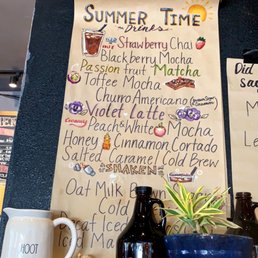 SUMMER TIME
Drinks
Strawberry Chai
Blackberry Mocha
Passion fruit Matcha
Toffee Mocha
Churro Americano
Violet Latte
Peach & White Mocha
Honey Cinnamon Cortado
Salted Caramel Cold Brew
SHAKEN
Oat Milk Brown
Cold
Iced
Iced Ma
HOOT
Did